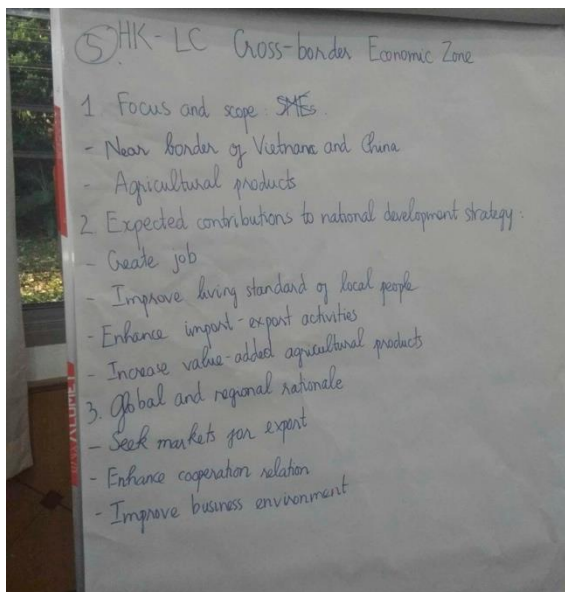 5 HK - LC Cross-border Economic Zone
1. Focus and scope: SMEs.
- Near border of Vietnam and China
- Agricultural products
2. Expected contributions to national development strategy:
- Create job
- Improve living standard of local people
- Enhance import-export activities
- Increase value-added agricultural products
3. Global and regional rationale
- Seek markets for export
- Enhance cooperation relation
- Improve business environment